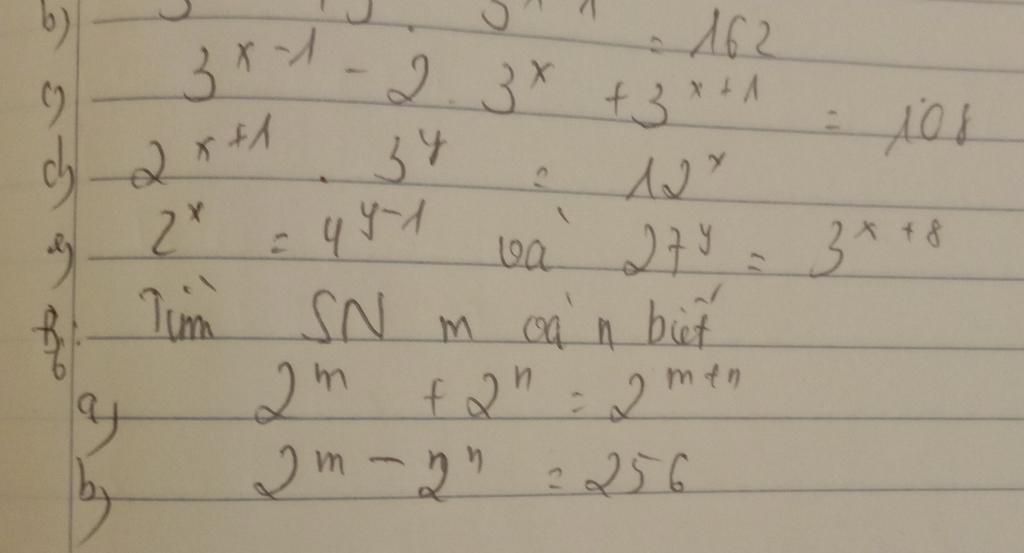 b) = 162
c) 3^{x-1} - 2 . 3^x + 3^{x+1} = 108
d) 2^{x+1} . 3^y = 12^x
e) 2^x = 4^{y-1} và 27^y = 3^{x+8}
B6: Tìm SN m và n biết
a) 2^m + 2^n = 2^{m+n}
b) 2^m - 2^n = 256